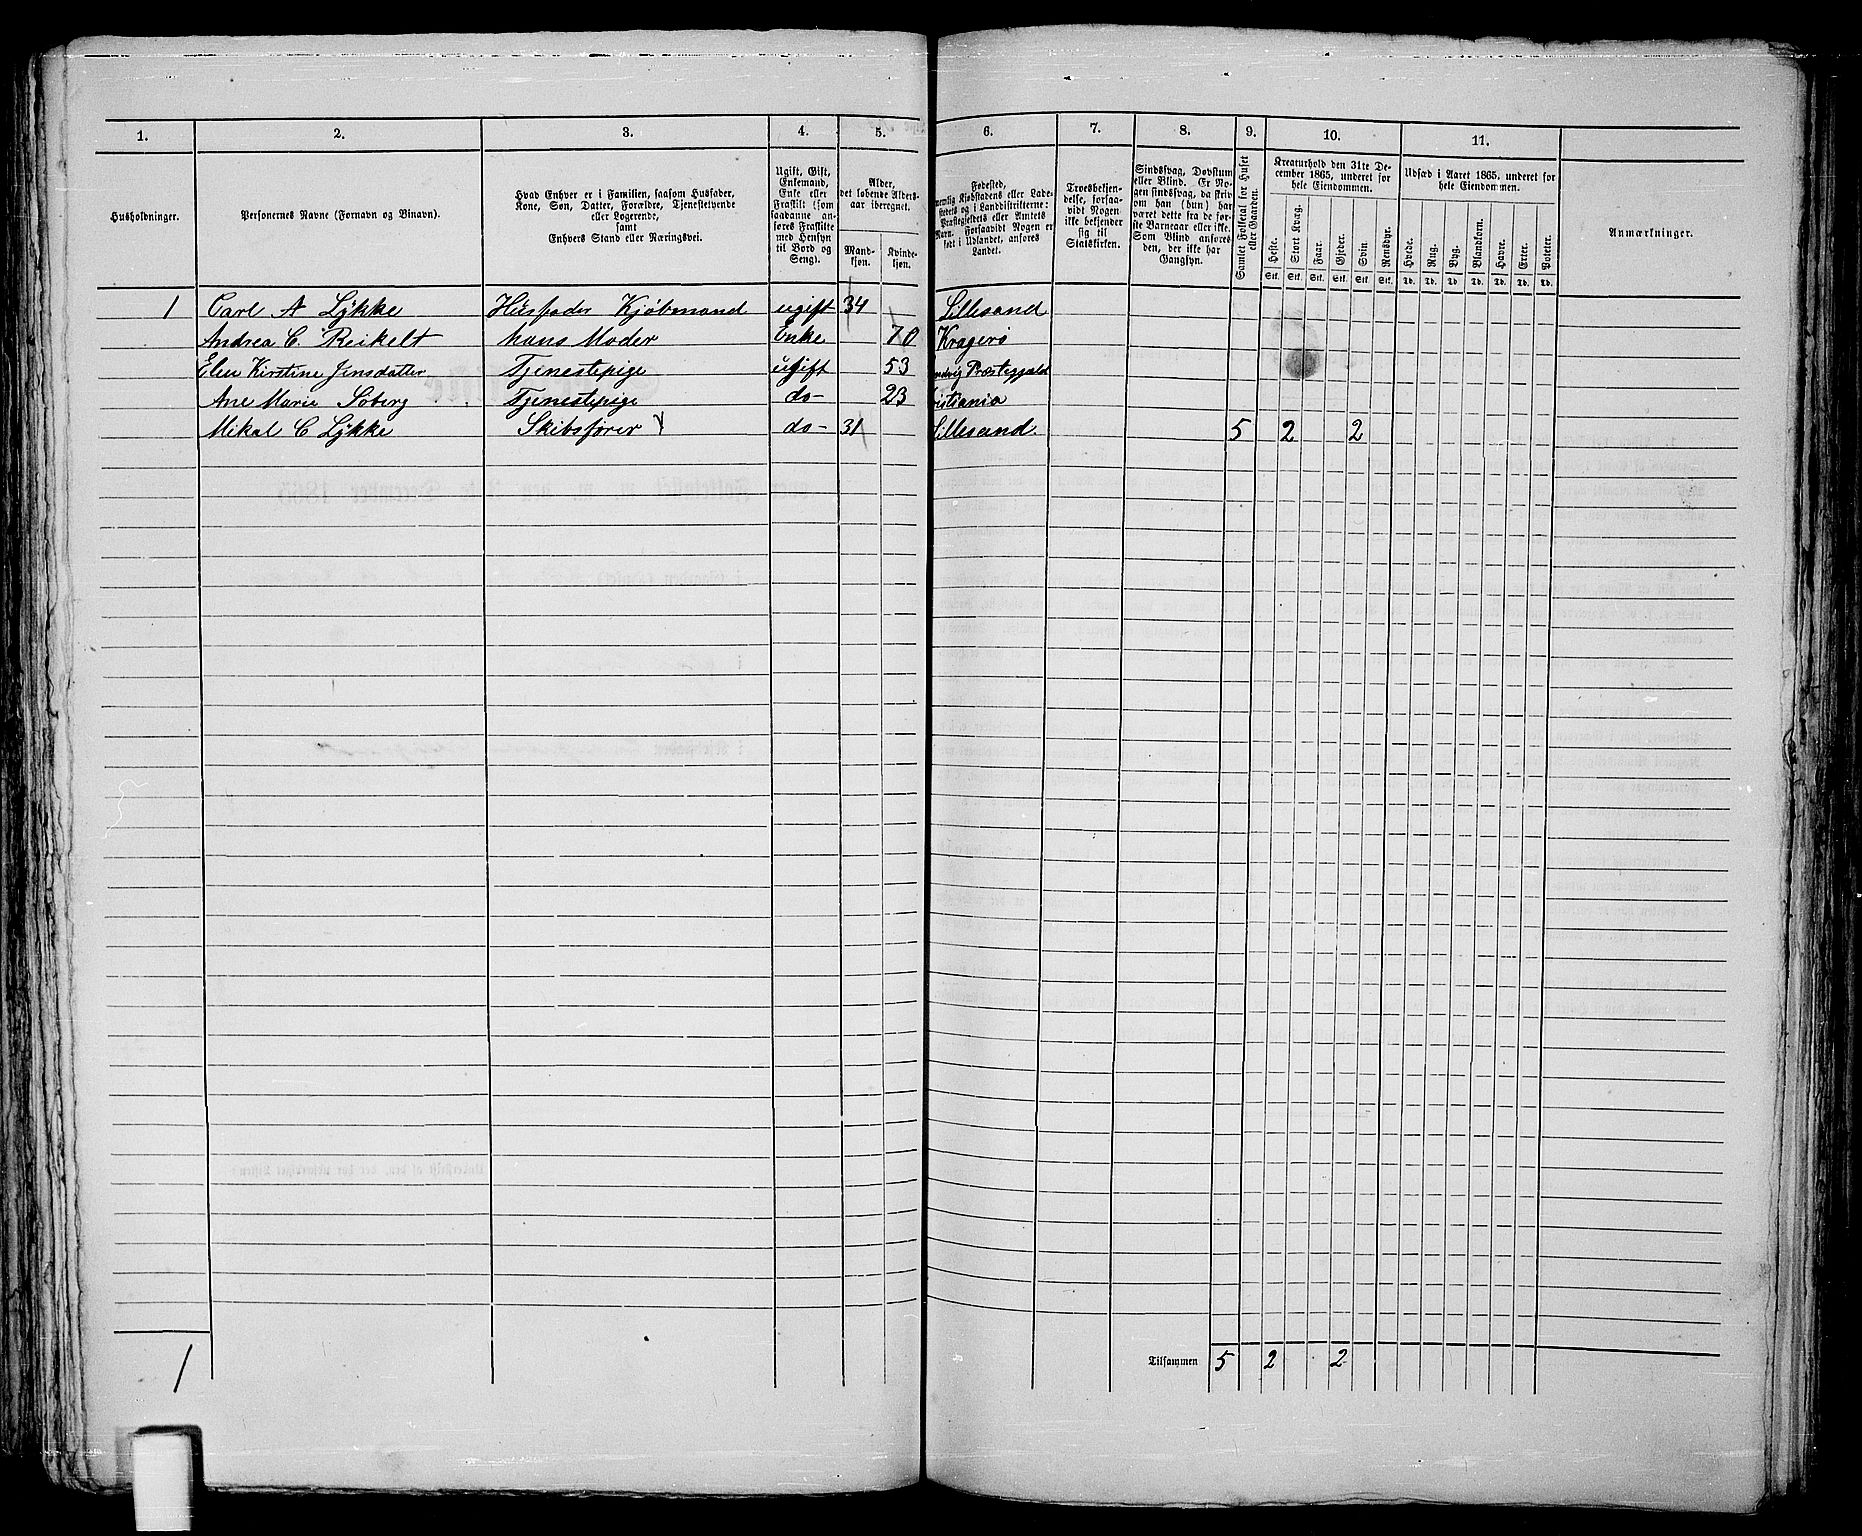 1. 2. 3. 4. 5. 6. 7. 8. 9. 10. 11.
Husholdninger.
Personernes Navne (Fornavn og Binavn).
Hvad Enhver er i Familien, saasom Husfader,
Kone, Søn, Datter, Forældre, Tjenestetyende
eller Logerende,
samt
Enhvers Stand eller Næringsvei.
Ugift, Gift,
Enkemand,
Enke eller
Fraskilt (som
saadanne an-
føres Fraskilte
med Hensyn
til Bord og
Seng).
Alder,
det løbende Alders-
aar iberegnet.
Mand-
kjøn.
Kvinde-
kjøn.
Fødested,
nemlig Kjøbstadens eller Lade-
stedets og i Landdistrikterne:
Præstegjeldets eller Amtets
Navn. Forsaavidt Nogen er
født i Udlandet, anføres
Landet.
Troesbekjen-
delse, forsaa-
vidt Nogen
ikke bekjender
sig til
Statskirken.
Sindssvag, Døvstum
eller Blind. Er No-
gen sindssvag, da skriv
om han (hun) har
været dette fra de før-
ste Barneaar eller ikke.
Som Blind anføres
den, der ikke har
Gangsyn.
Samlet Folketal for Huset
eller Gaarden.
Kreaturhold den 31te De-
cember 1865, underet for
hele Eiendommen.
Heste. Stort Kvæg. Faar. Gjeder. Svin. Rensdyr.
Stk. Stk. Stk. Stk. Stk. Stk.
Udsæd i Aaret 1865, underet for
hele Eiendommen.
Hvede. Rug. Byg. Blandkorn. Havre. Erter. Poteter.
Td. Td. Td. Td. Td. Td. Td.
Anmærkninger.
1 Carl A Lykke Husfader Kjøbmand ugift 34 Lillesand
Andrea C. Reikelt hans Moder Enke 70 Kragerø
Elen Kirstine Jensdatter Tjenestepige ugift 53 Præstegjæld
Ane Marie Søberg Tjenestepige do- 23 istiania
Mikal C Lykke Skibsfører do- 31 Lillesand. 5 2 2
1 Tilsammen 5 2 2